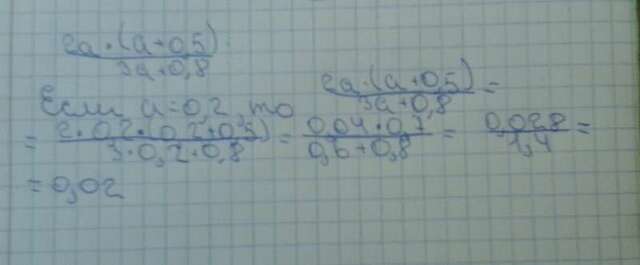 2a·(a+0,5)/3a+0,8
Если a=0,2, то 2a·(a+0,5)/3a+0,8 =
= 2·0,2·(0,2+0,5)/3·0,2+0,8 = 0,04·0,7/0,6+0,8 = 0,028/1,4 =
= 0,02